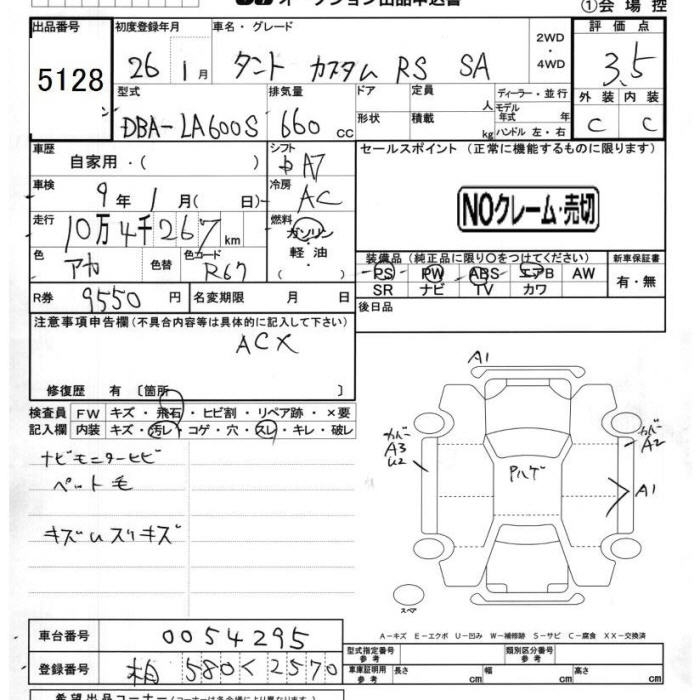 オークション出品申込書
①会場控
出品番号 初度登録年月 車名・グレード 2WD・4WD 評価点
5128 26 1月 タント カスタム RS SA 3.5
型式 排気量 ドア 定員 人 ディーラー・並行 外装 内装
DBA-LA600S 660 cc 形状 積載 kg モデル年式 年 ハンドル 左・右 C C
車歴 自家用・( ) シフト AT セールスポイント (正常に機能するものに限ります)
車検 9年 1月 ( 日) 冷房 AC
NOクレーム・売切
走行 10万4千267km 燃料 ガソリン・軽油・( )
色 アカ 色替 色カード R67
装備品 (純正品に限り○をつけてください) 新車保証書
PS PW ABS エアB AW 有・無
SR ナビ TV カワ
R券 9550円 名変期限 月 日 後日品
注意事項申告欄 (不具合内容等は具体的に記入して下さい)
ACX
修復歴 有 〔箇所 〕
検査員 FW キズ・飛石・ヒビ割・リペア跡・×要
記入欄 内装 キズ・汚レ・コゲ・穴・スレ・キレ・破レ
ナビモニターヒビ
ペット毛
キズUスリキズ
A1
カバー A3 U2
カバー A2
A1
スペア
A-キズ E-エクボ U-凹み W-補修跡 S-サビ C-腐食 XX-交換済
車台番号 0054295 型式指定番号 参考 類別区分番号 参考
登録番号 相 580 く 2570 車庫証明用 参考 長さ cm 幅 cm 高さ cm
希望出品コーナー